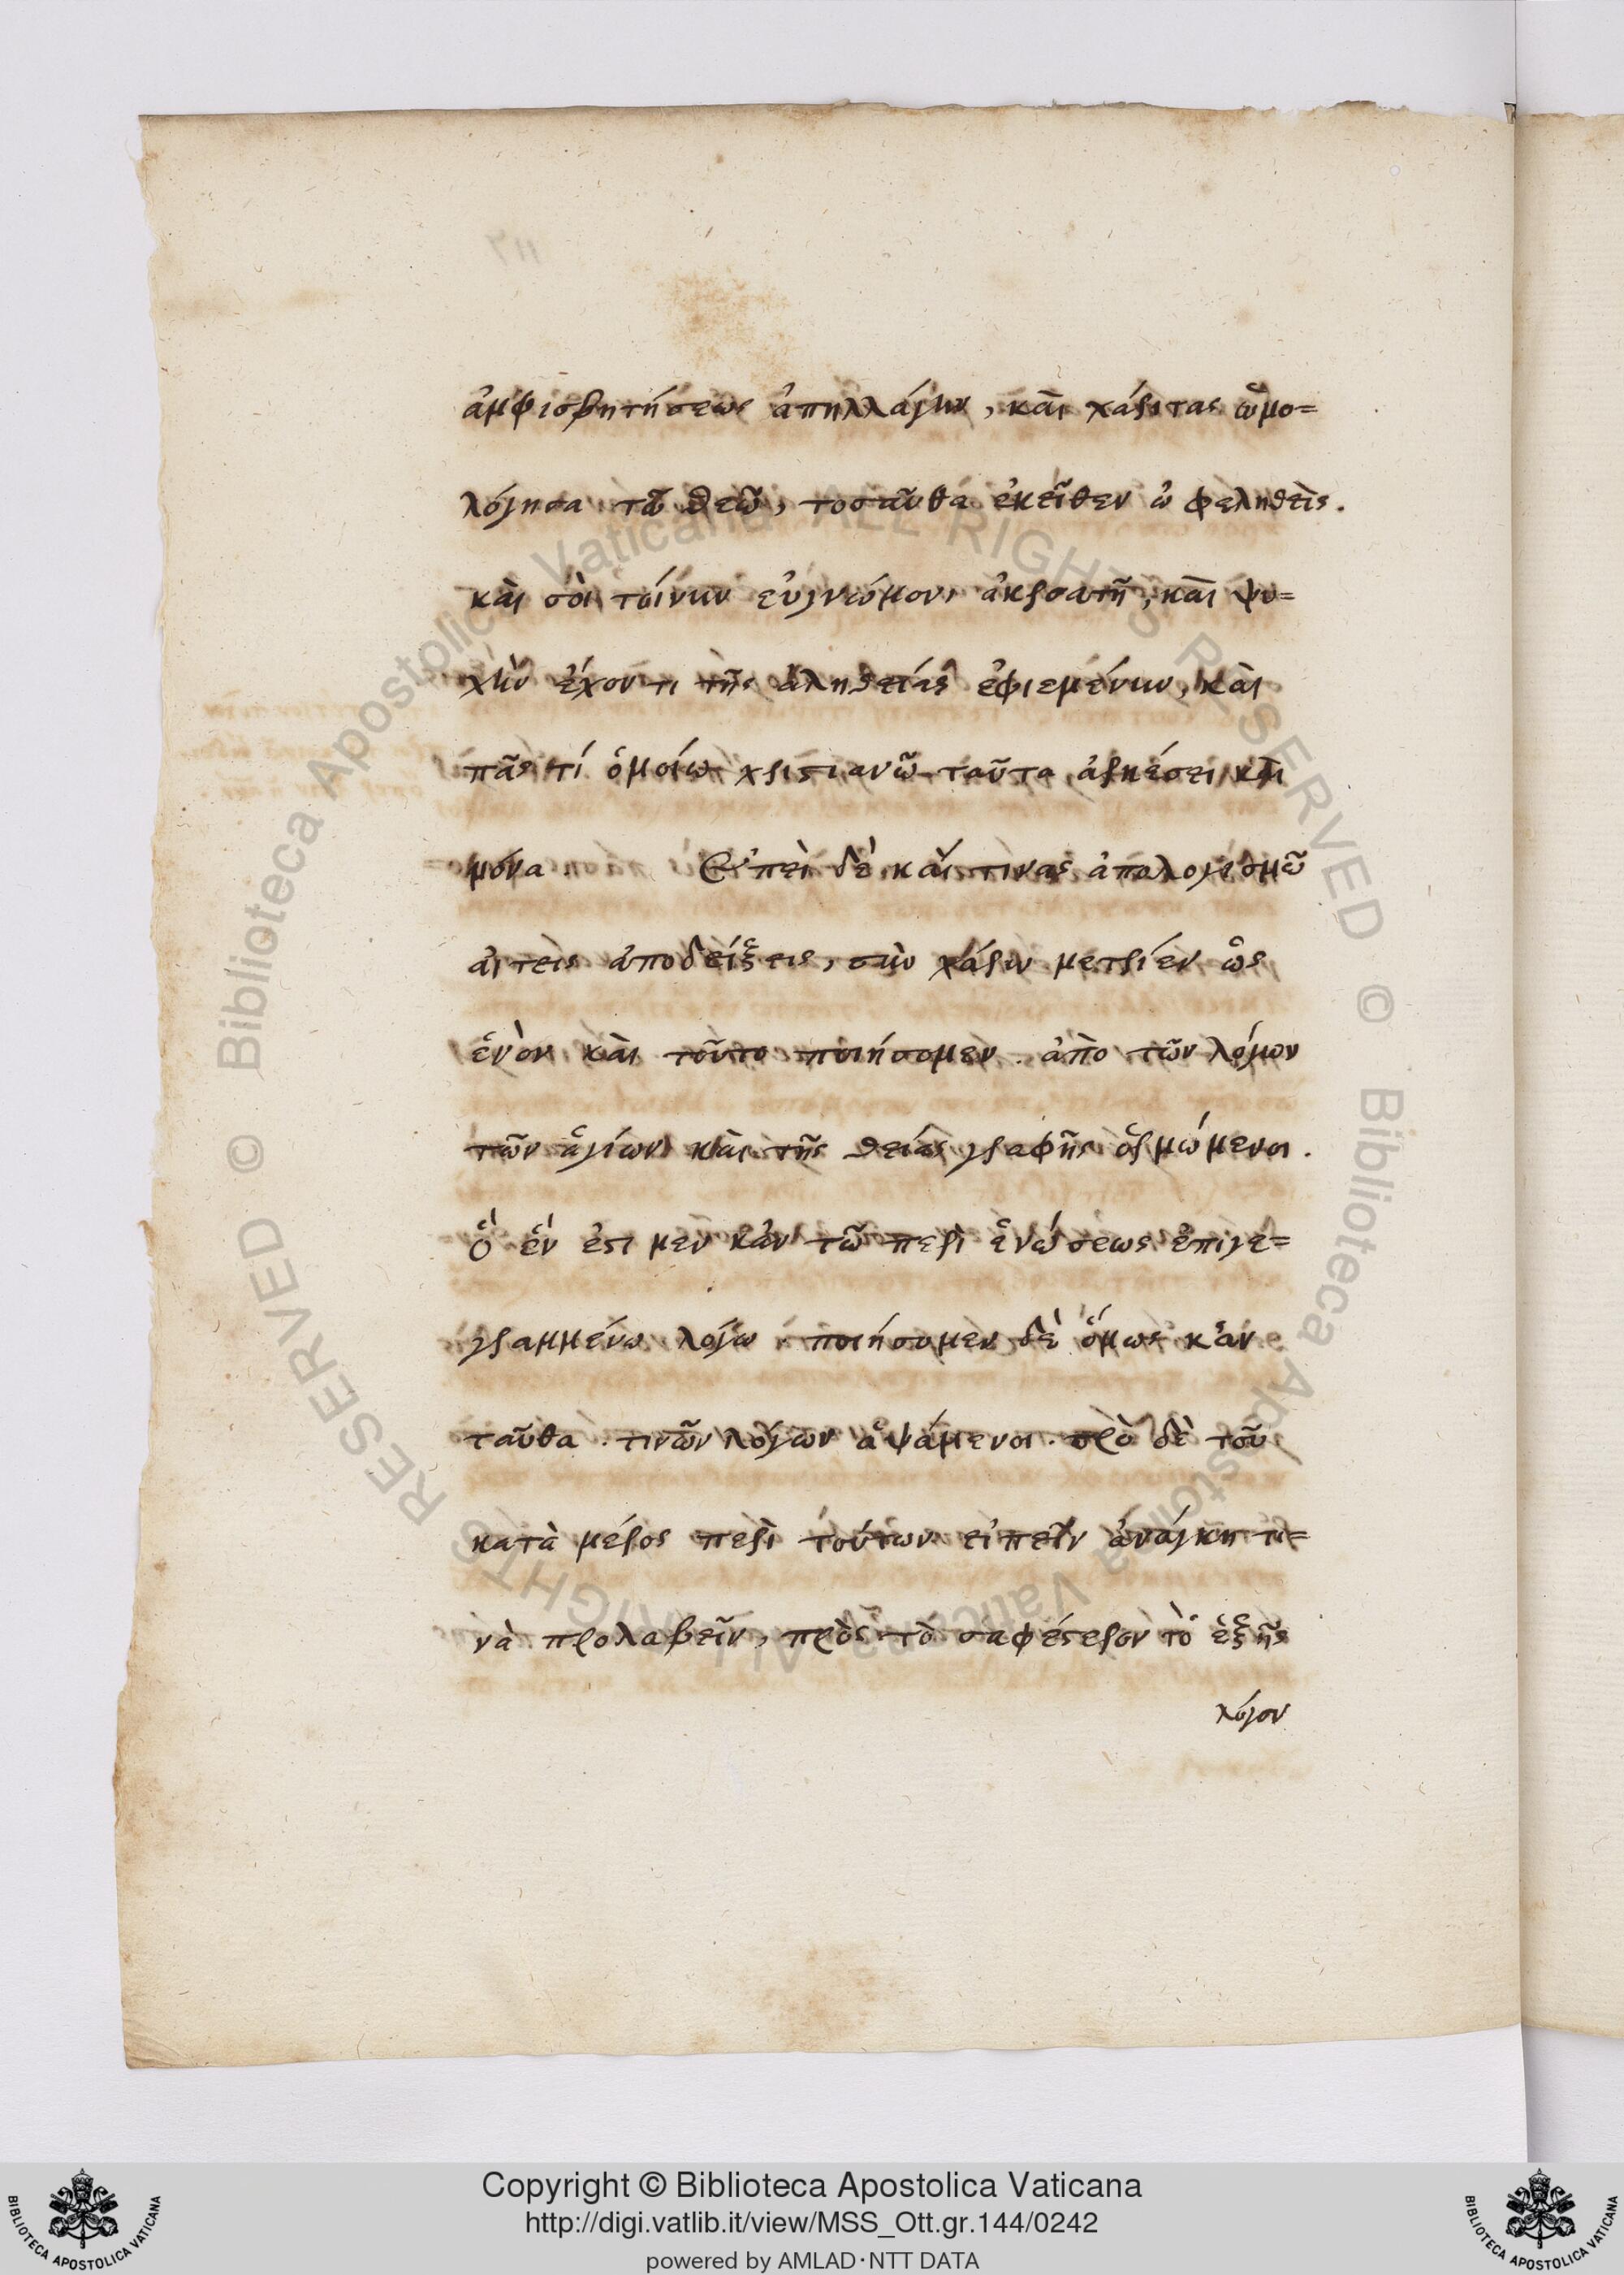 ἀμφισβητήσεως ἀπηλλάγην, καὶ χάριτας ὡμο=
λόγησα τῶ θεῶ, τοσαῦθα ἐκεῖθεν ὠφεληθεὶς.
καὶ σὸι τοίνυν εὐγνώμονι ἀκροατῆ, καὶ ψυ=
χὴν ἔχοντι τῆς ἀληθείας ἐφιεμένην, καὶ
πᾶς τί ὁμοίω χριστιανῶ ταῦτα ἀρκέσει καὶ
μόνα. Ἐπεὶ δὲ καί τινας ἀπολογισμῶ
αἰτεὶς ἀποδείξεις, σὴν χάριν μετρίεν ὡς
ἐνὸν καὶ τοῦτο ποιήσομεν. ἀπὸ τῶν λόγων
τῶν ἁγίων καὶ τῆς θείας γραφῆς ὁρμώμενοι.
Ὅ ἕν ἐστι μεν κἀν τῶ περὶ ἑνώσεως ἐπιγε=
γραμμένω λόγω. ποιήσομεν δὲ ὅμως κἀν
ταῦθα. τινῶν λόγων ἁψάμενοι. πρὸ δὲ τοῦ
κατὰ μέρος περὶ τούτων εἰπεῖν ἀνάγκη τι=
νὰ προλαβεῖν, πρὸς τὸ σαφέστερον τὸ ἑξῆς
λόγον
Copyright © Biblioteca Apostolica Vaticana
http://digi.vatlib.it/view/MSS_Ott.gr.144/0242
powered by AMLAD·NTT DATA
BIBLIOTECA APOSTOLICA VATICANA
BIBLIOTECA APOSTOLICA VATICANA
© Biblioteca Apostolica Vaticana ALL RIGHTS RESERVED © Biblioteca Apostolica Vaticana ALL RIGHTS RESERVED